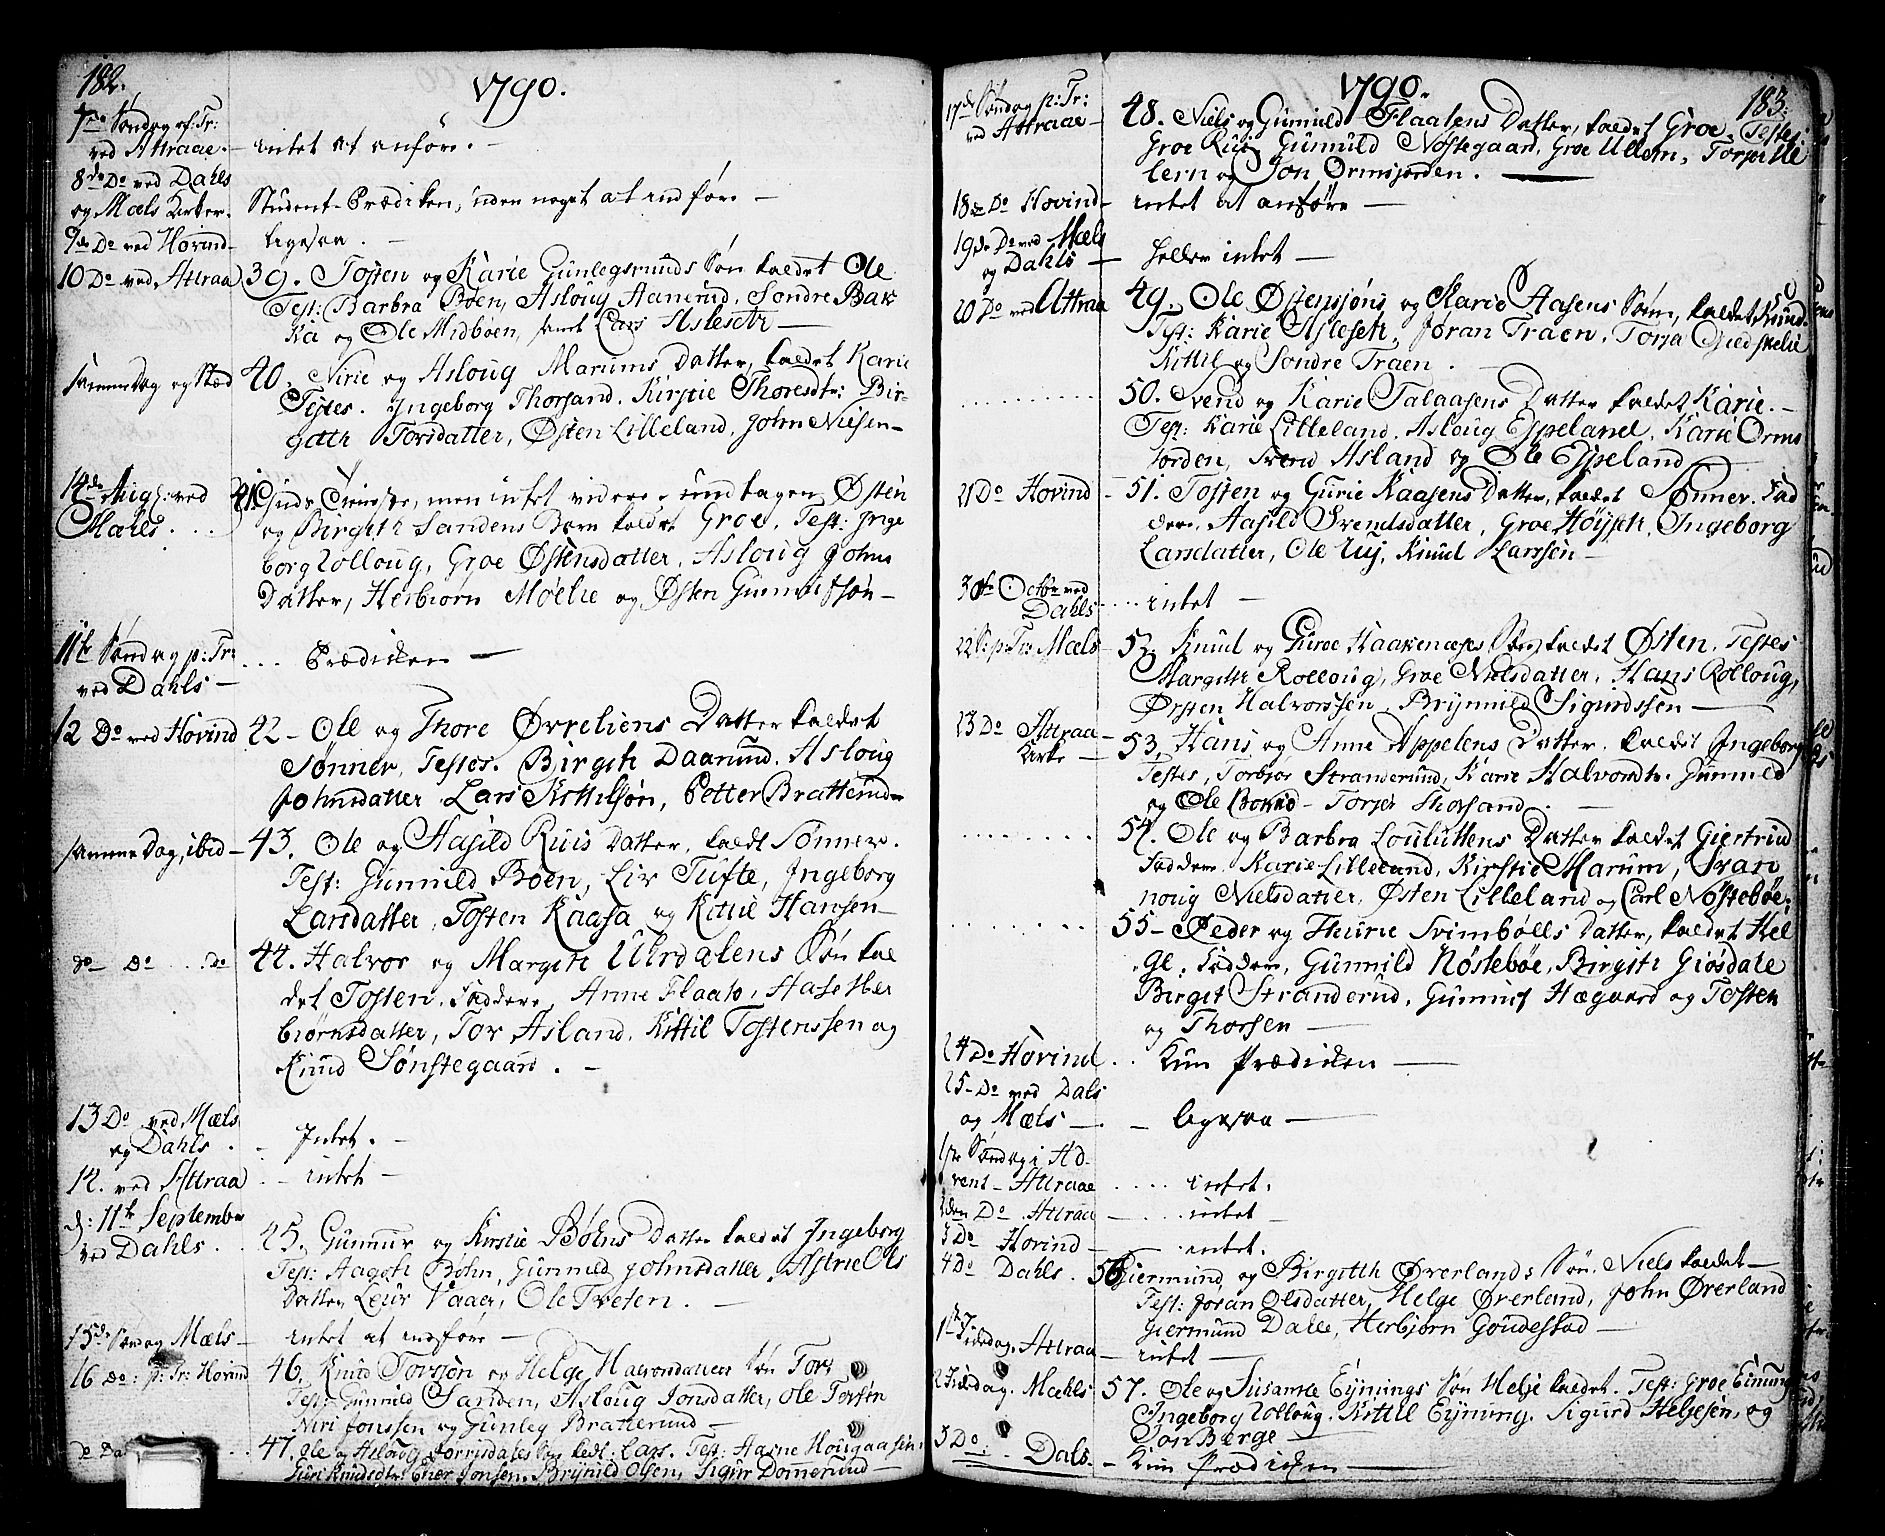 182.
1790.
7de Søndag ef: Tr:
ved Attraae. — intet at anføre. —
8de Do ved Dahls
og Mæls Kirker. Student-Prædiken, uden noget at indføre —
9de Do ved Hovind — ligesaa. —
10 Do ved Attraa 39. Tosten og Karie Gunlegsruds Søn kaldet Ole
Test: Barbra Bøen, Asloug Aanerud. Sondre Bak
ka og Ole Midbøen, samt Lars Aslesetr —
samme Dag og Stæd 40. Nirie og Asloug Marums Datter, kaldet Karie
Testes. Ingeborg Thorsand. Kirstie Thoresdtr: Bir-
gith Torsdatter, Østen Lilleland, John Nielsen —
14de Aug: ved 41. Guds Tieneste, men intet videre undtagen Østen
Mæls. ... og Birgith Sandens Barn kaldet Groe. Test: Inge
borg Rolloug, Groe Østensdatter, Asloug Johns
Datter, Herbiørn Møelie og Østen Gunnulfsøn —
11te Søndag p: Tr:
ved Dahls — ... Prædiken —
12 Do ved Hovind 42 — Ole og Thore Ørreliens Datter kaldet
Sønner. Testes. Birgith Daarud. Asloug
Johnsdatter. Lars Kittilsøn, Petter Bratterud —
samme Dag, ibid — 43. Ole og Aasild Ruis Datter, kaldt Sønner.
Test: Gunnild Bøen, Liv Tufte, Ingeborg
Larsdatter, Tosten Kaasa og Kittil Hansen —
do — Do ... do 44. Halvor og Margith Uhrdalens Søn kal
det Tosten. Faddere, Anne Flaato, Aase Her
biørnsdatter, Tor Asland. Kittil Tostenssen og
Knud Sønstegaard. —
13 Do ved Mæls
og Dahls. — Intet. —
14. ved Attraa — intet —
d: 11te Septembr
ved Dahls. 45. Gunnur og Kirstie Bøhns Datter kaldet Ingeborg
Test: Aagoth Bøhn, Gunnild Johnsdatter, Astrie Ols
Datter, Leur Vaaer, Ole Tveten. —
15de Søndag Mæls — intet at indføre —
16 Do: p: Tr: Hovind 46. Knud Torssøn og Helge Halvorsdatters Søn Tor
Test: Gunnild Sanden, Asloug Jonsdatter, Ole Torsøn
Niri Jonssen og Gunleg Bratterud —
47. Ole og Asloug kedt: Lars. Test: Aasne Hougaasen
Guri Knudsdtr: Jonsen, Brynild Olsen, Sigur Dommerud
183.
1790.
17de Søndag p: Tr:
ved Attraae — 48. Niels og Gunnild Flaatens Datter, kaldet Groe. Testes
Groe Rui, Gunnuld Nøstegaard, Groe Ullern, Torjer Ul
lern og Jon Ormsjorden. —
18de Do Hovind — intet at anføre —
19de Do ved Mæls
og Dahls — heller intet —
20 Do ved Attraa 49. Ole Østensjøns og Karie Aasens Sønn, kaldet Knud.
Test: Karie Aslesetr, Jøran Traen, Torja
Kittil og Sondre Traen.
50. Svend og Karie Talaasens Datter kaldet Karie. —
Test: Karie Lilleland, Asloug Ejpeland, Karie Orms
jorden, Svend Asland og Ole Ejpeland
21 Do Hovind — 51. Tosten og Gurie Kaasens Datter, kaldet Sønner. Fad
dere. Aasild Svendsdatter, Groe Høijseth, Ingeborg
Larsdatter, Ole Ruj, Knud Larssen —
3de Octobr ved
Dahls. ... intet —
22 S: p: Tr: Mæls — 52. Knud og Guroe Haakenæss Søn kaldet Østen. Testes
Margith Rolloug, Groe Nielsdatter, Hans Rolloug,
Østen Halvorssen, Brynnild Sigurdssen —
23 Do Attraa —
Kirke — 53. Hans og Anne Appelens Datter, kaldet Ingeborg
Testes, Torbjør Stranderud, Karie Halvorsdtr. Gunnild
og Ole — Torjer Thorsand. —
54. Ole og Barbra Louluttens Datter kaldet Giertrud
Faddere Karie Lilleland, Kirstie Marum, Svan
noug Nielsdatter, Østen Lilleland og Carl Nøstebøe.
55 — Peder og Thurie Svimbølls Datter, kaldet Hel
ge. Faddere, Gunnild Nøstebøe, Birgith Giøsdale
Birgit Stranderud, Gunnuf Hægaard og Tosten
og Thorsen —
24 Do Hovind. .. Kun Prædiken —
25 — Do ved Dals
og Mæls — — ligesaa —
1ste Søndag i Ad-
vent — Attraae .... intet.
2den Do Attraa — ... intet —
3 Do Hovind — intet.
4 Do Dahls. 56. Giermund og Birgitth Ørerlands Søn. Niels kaldet —
Test: Jøran Olsdatter, Helge Ørerland, John Ørerland
Giermund Dale, Herbjørn Goudestad —
1ste Juledag. Attraa — intet —
2 Juledag. Mæhls 57. Ole og Susanne Ejnings Søn Helje kaldet. Test: Groe
Ingeborg Rolloug. Kittil Ejning. Sigurd Heljesen, og
Jon Berge —
3 Do: — Dals. — Kun Prædiken —